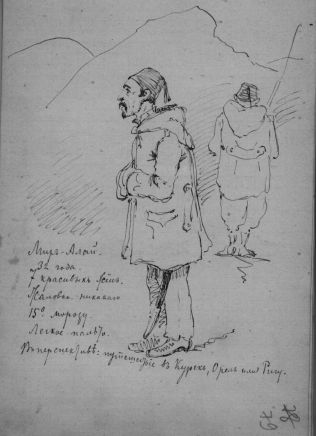 Миръ-Алай.
32 года.
7 красивыхъ женъ.
Жалованья никакого
15° морозу.
Легкое пальто.
Въ перспективѣ: путешествіе въ Курскъ, Орелъ или Ригу.